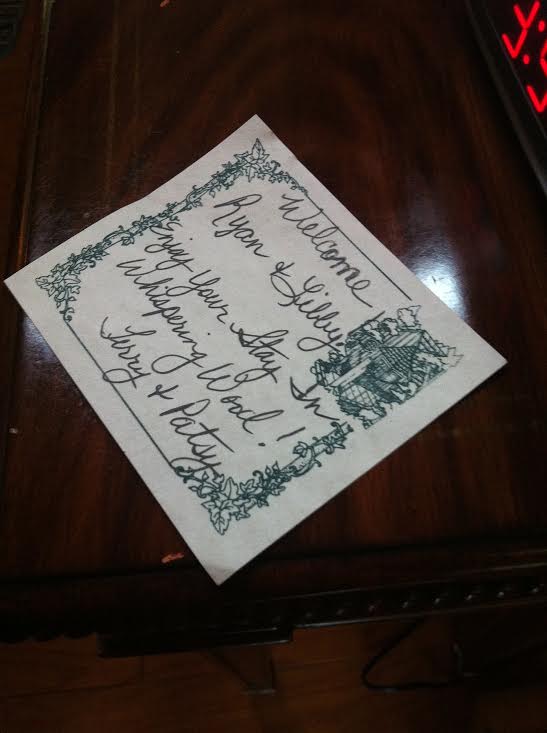 Welcome
Ryan & Libby.
Enjoy Your Stay In
Whispering Wood!
Terry & Patsy